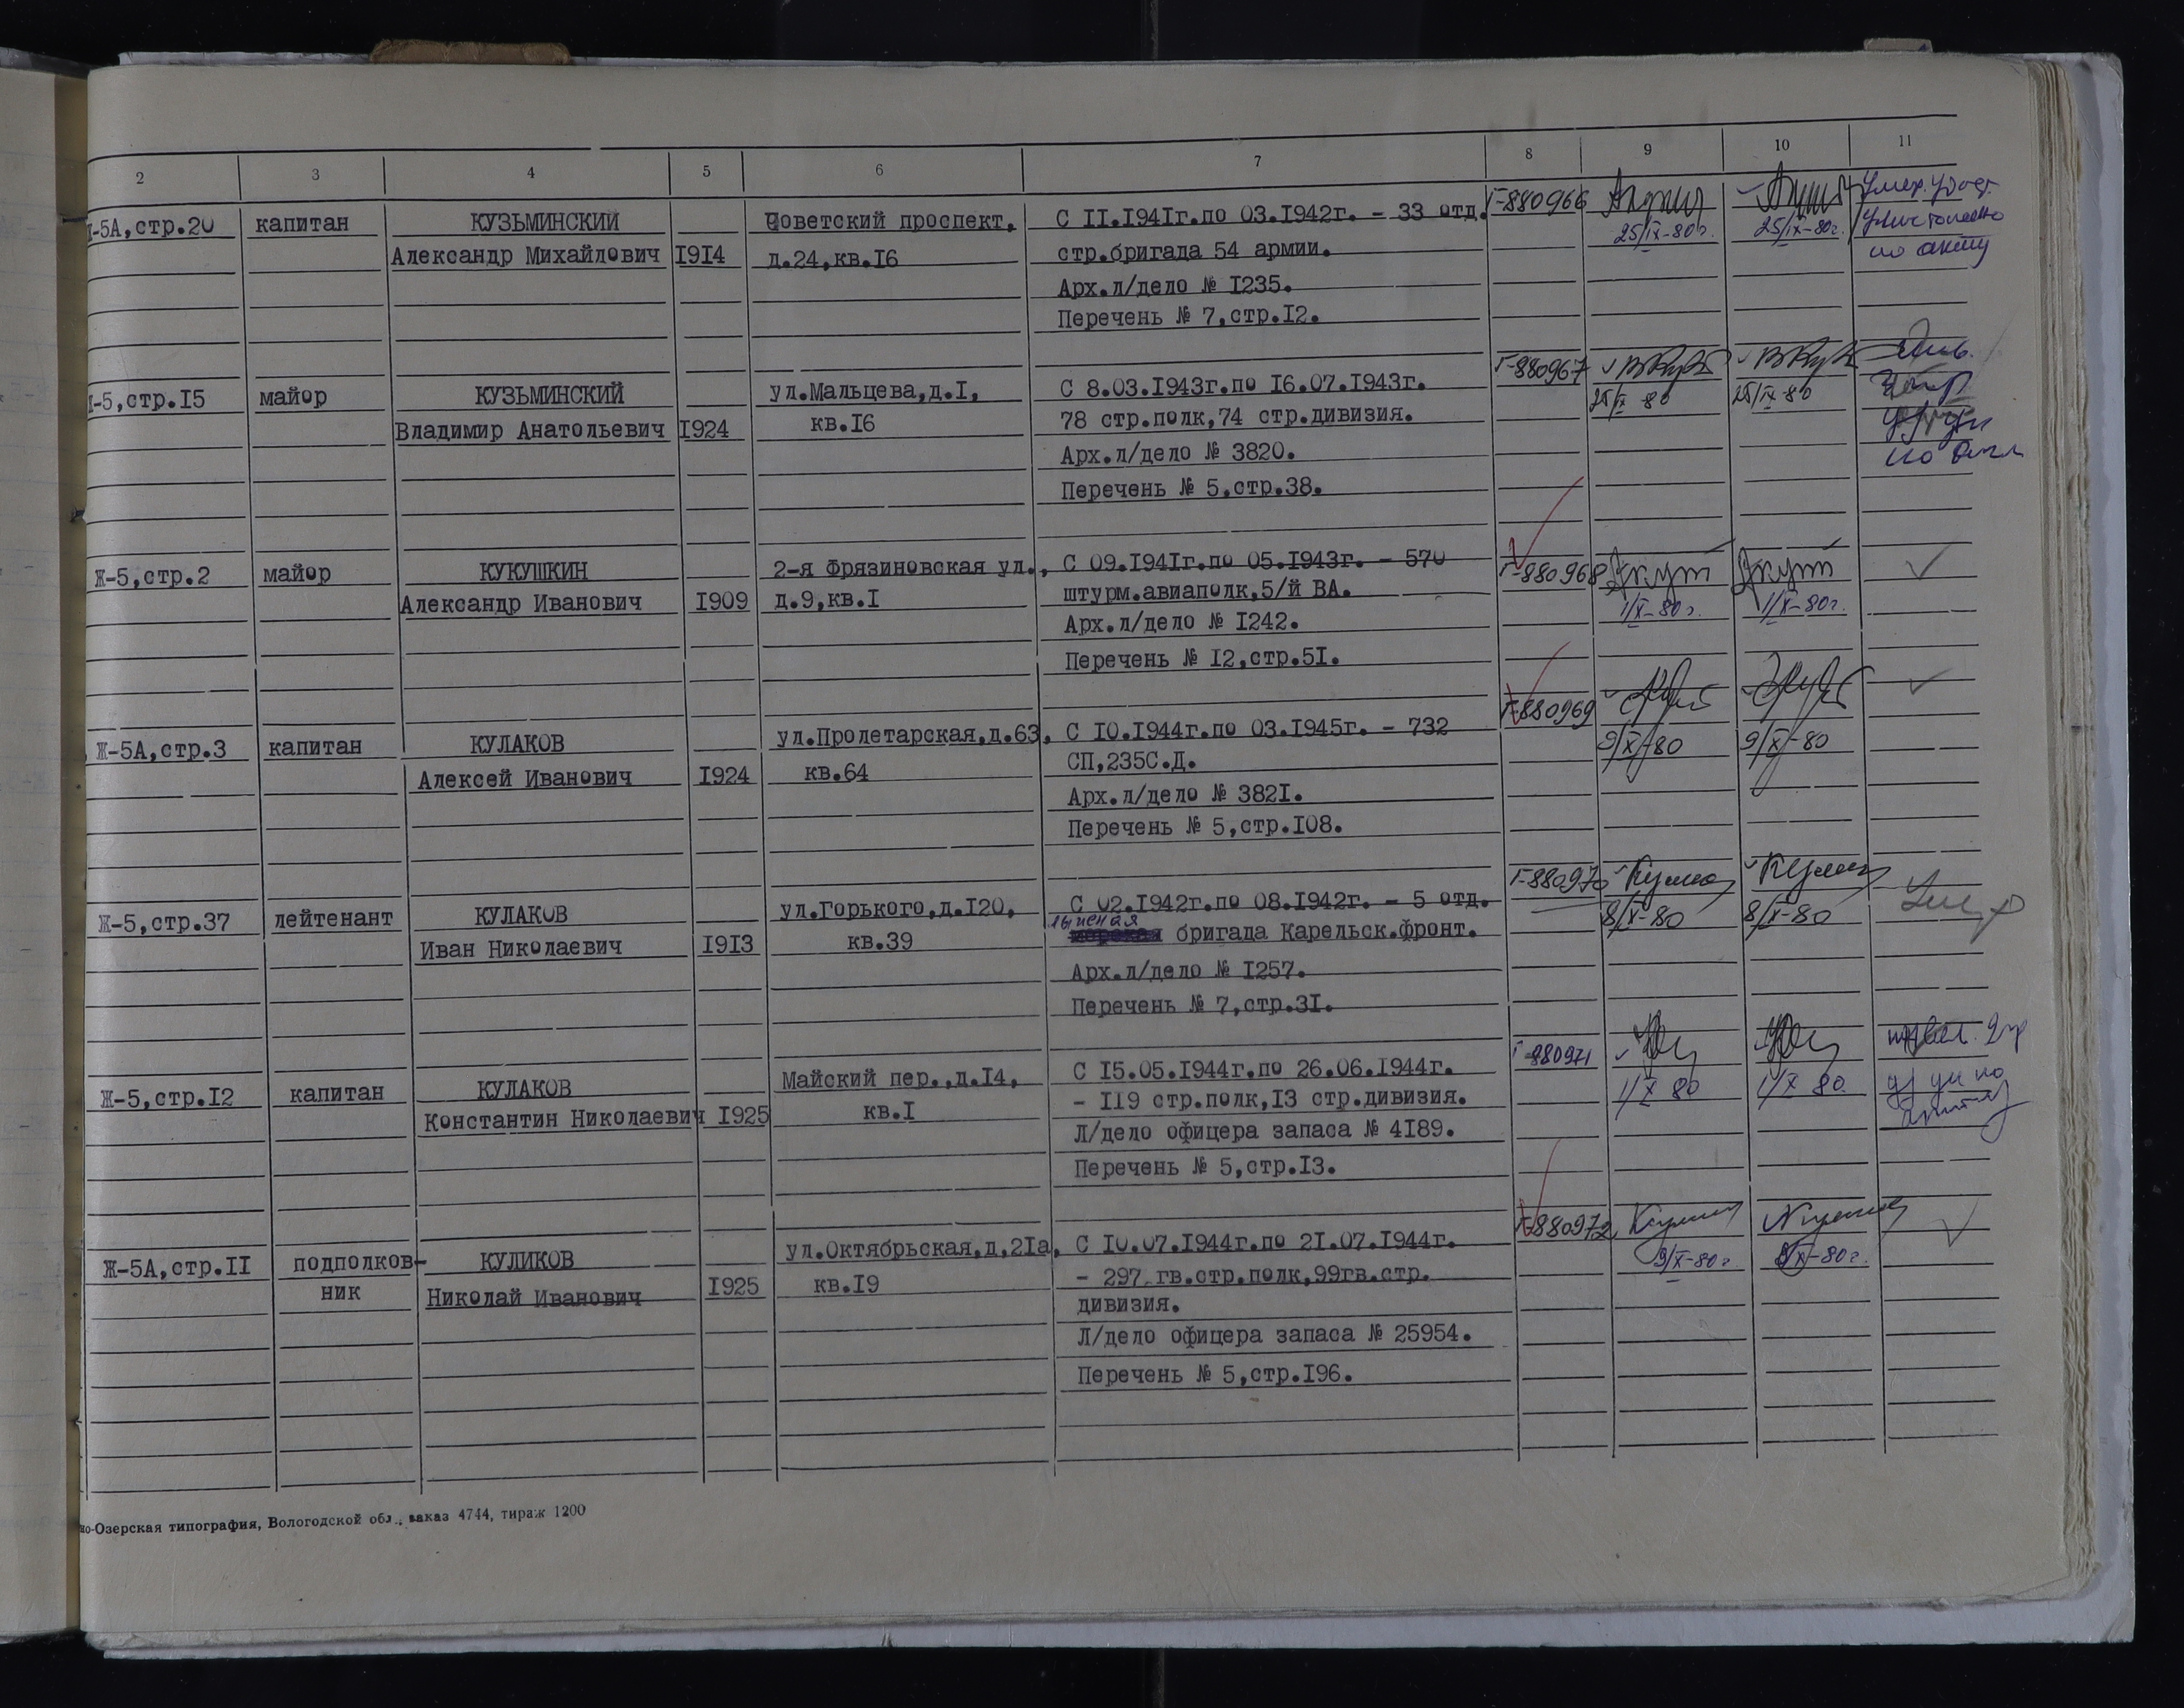 2 3 4 5 6 7 8 9 10 11
-5А,стр.20 капитан КУЗЬМИНСКИЙ Советский проспект, С II.I94Iг.по 03.I942г. - 33 отд. Г-880966
Александр Михайлович I9I4 д.24,кв.I6 стр.бригада 54 армии. 25/IX-80г. 25/IX-80г.
Арх.л/дело № I235. по акту
Перечень № 7,стр.I2.
-5,стр.I5 майор КУЗЬМИНСКИЙ ул.Мальцева,д.I, С 8.03.I943г.по I6.07.I943г. Г-880967
Владимир Анатольевич I924 кв.I6 78 стр.полк,74 стр.дивизия. 25/IX 80 25/IX-80
Арх.л/дело № 3820.
Перечень № 5,стр.38.
Ж-5,стр.2 майор КУКУШКИН 2-я Фрязиновская ул., С 09.I94Iг.по 05.I943г. - 570 Г-880968
Александр Иванович I909 д.9,кв.I штурм.авиаполк,5/й ВА. 1/X-80г. 1/X-80г.
Арх.л/дело № I242.
Перечень № I2,стр.5I.
Ж-5А,стр.3 капитан КУЛАКОВ ул.Пролетарская,д.63, С I0.I944г.по 03.I945г. - 732 Г-880969
Алексей Иванович I924 кв.64 СП,235С.Д. 9/X-80 9/X-80
Арх.л/дело № 382I.
Перечень № 5,стр.I08.
Ж-5,стр.37 лейтенант КУЛАКОВ ул.Горького,д.I20, С 02.I942г.по 08.I942г. - 5 отд. Г-880970
Иван Николаевич I9I3 кв.39 лыжная бригада Карельск.фронт. 8/X-80 8/X-80
Арх.л/дело № I257.
Перечень № 7,стр.3I.
Ж-5,стр.I2 капитан КУЛАКОВ Майский пер.,д.I4, С I5.05.I944г.по 26.06.I944г. Г-880971
Константин Николаевич I925 кв.I - II9 стр.полк,I3 стр.дивизия. 1/X 80 1/X 80
Л/дело офицера запаса № 4I89.
Перечень № 5,стр.I3.
Ж-5А,стр.II подполков- КУЛИКОВ ул.Октябрьская,д.2Iа, С I0.07.I944г.по 2I.07.I944г. Г-880972
ник Николай Иванович I925 кв.I9 - 297 гв.стр.полк,99гв.стр. 9/X-80г 9/X-80г.
дивизия.
Л/дело офицера запаса № 25954.
Перечень № 5,стр.I96.
но-Озерская типография, Вологодской обл., заказ 4744, тираж 1200